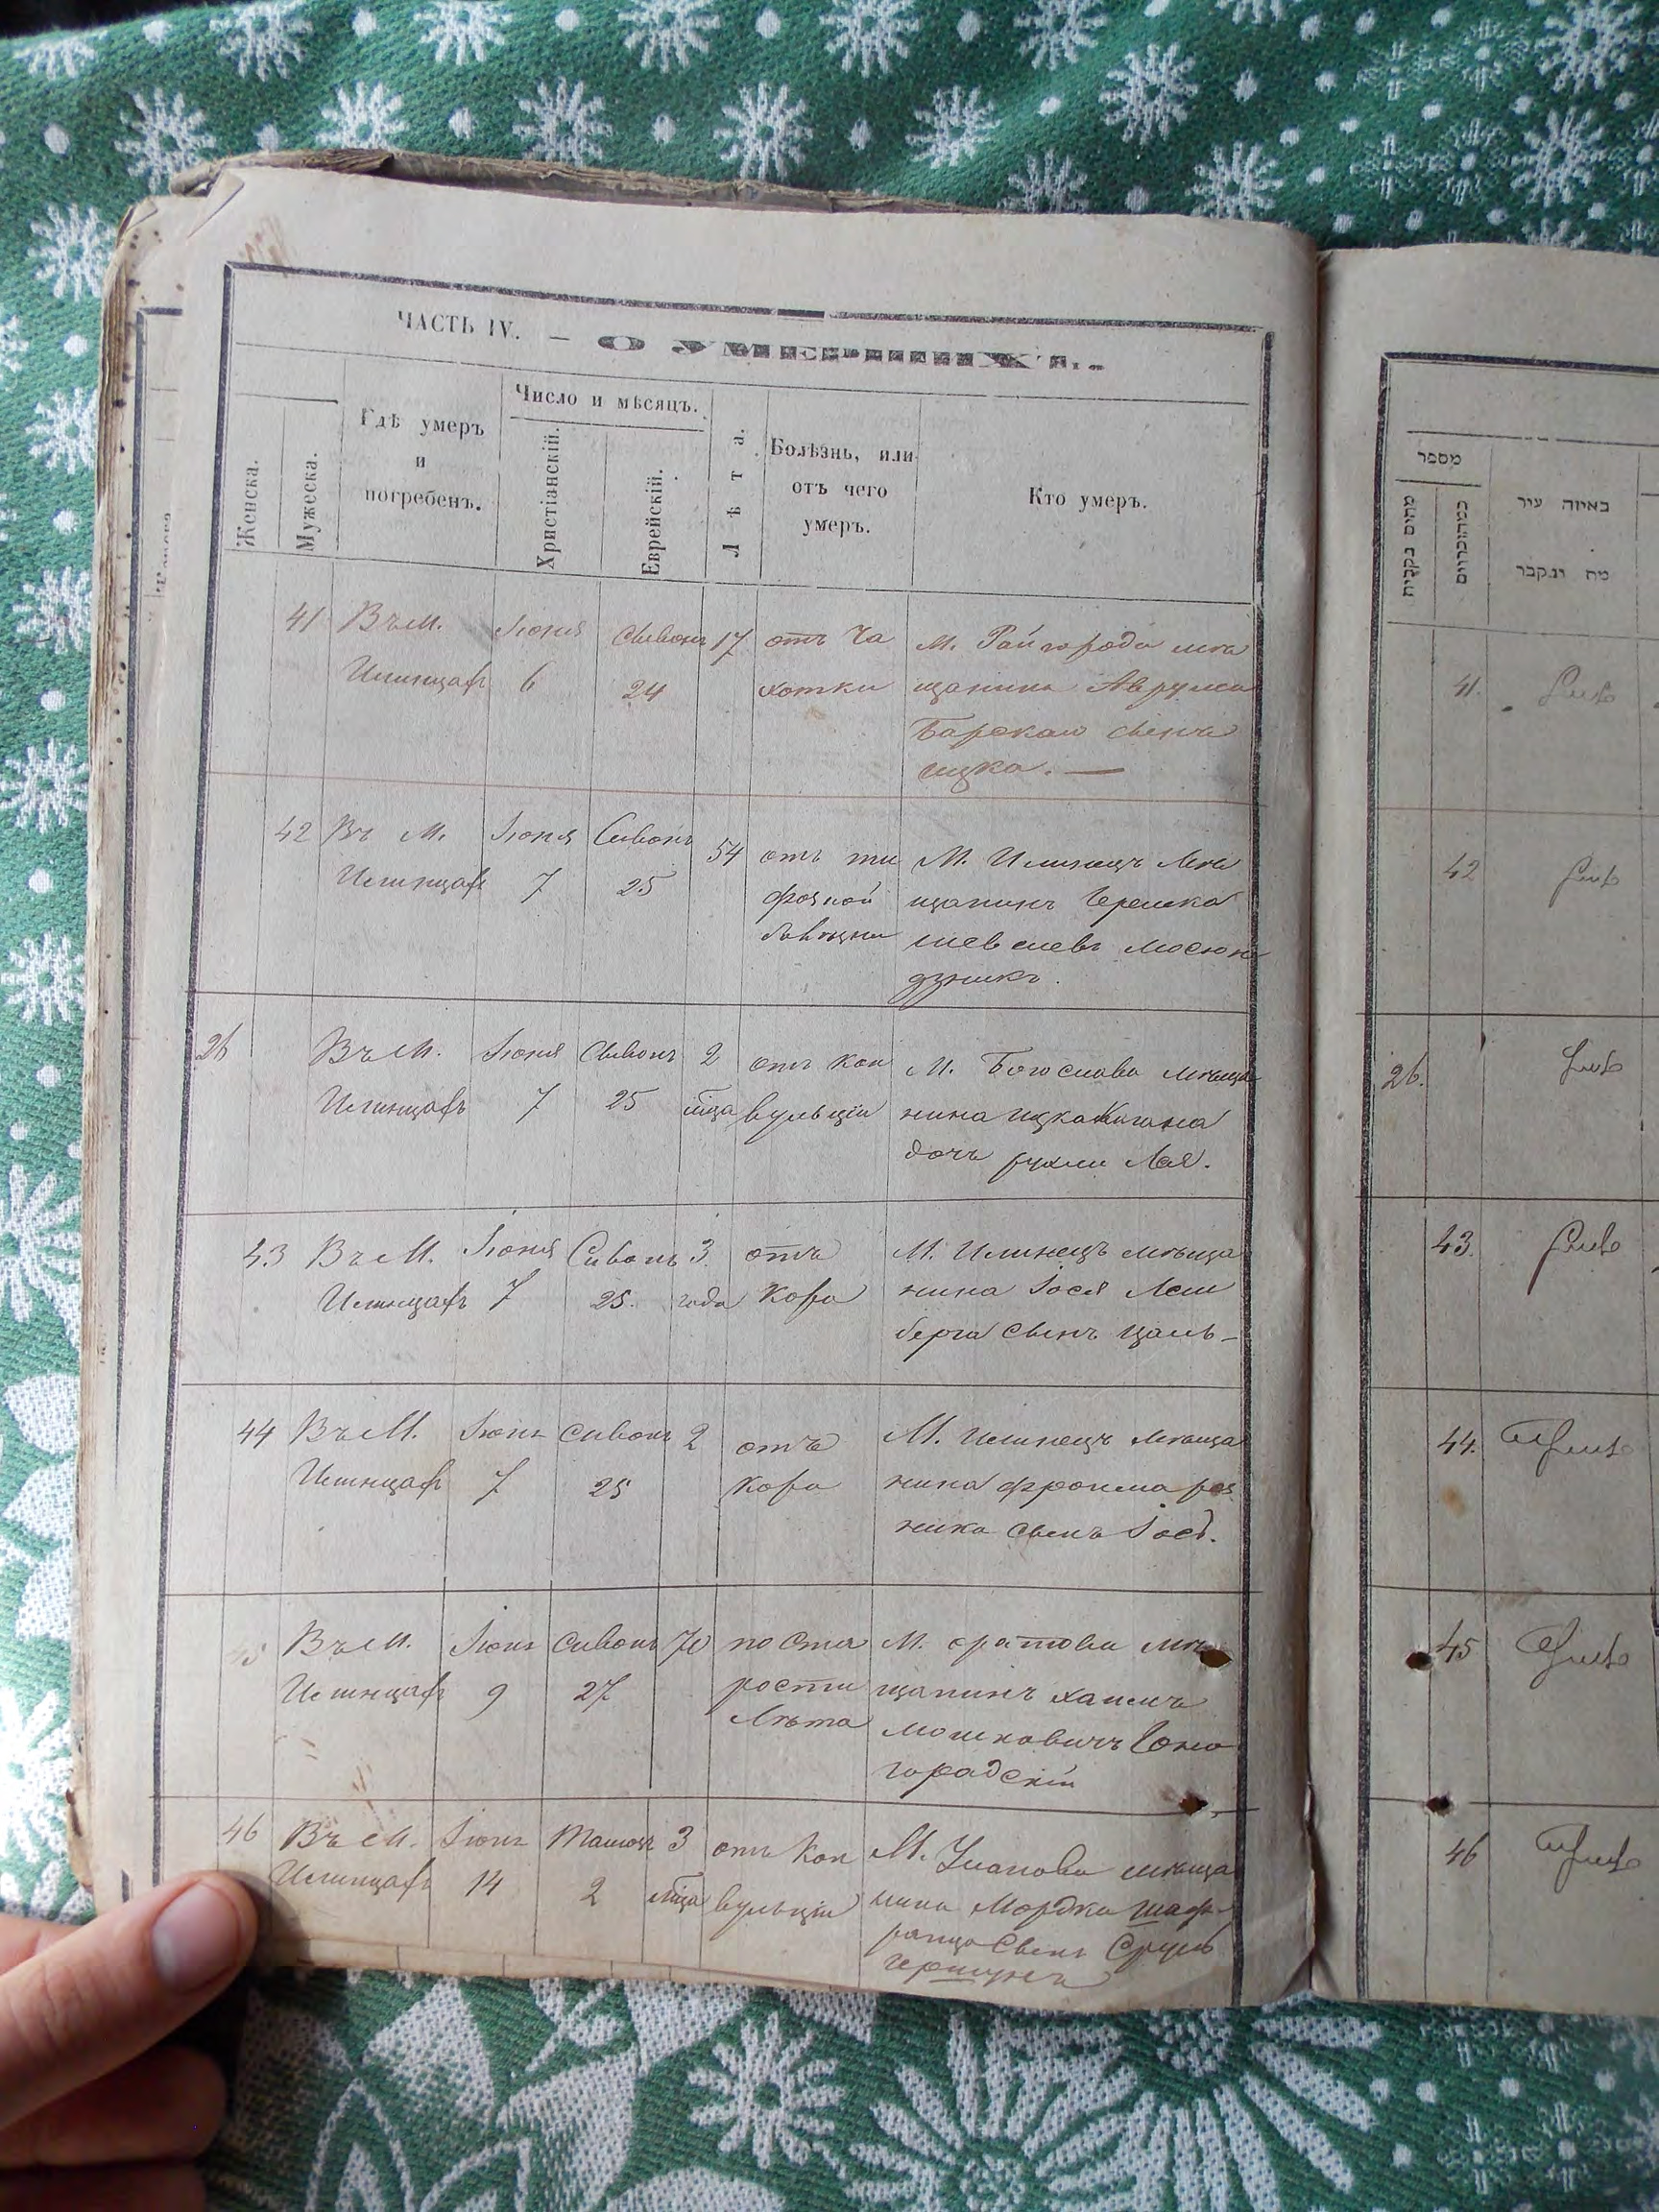 ЧАСТЬ IV. — О УМЕРШИХЪ.
Женска.
Мужеска.
Гдѣ умеръ
и
погребенъ.
Число и мѣсяцъ.
Христіанскій.
Еврейскій.
Лѣта.
Болѣзнь, или
отъ чего
умеръ.
Кто умеръ.
41
Въ м.
Илинцахъ
Іюня
6
Сивонъ
24
17
отъ ча
хотки
м. Райгорода мѣ
щанина Аврума
Барскаго сынъ
Ицко. —
42
Въ М.
Илинцахъ
Іюня
7
Сивонъ
25
54
отъ ти
фозной
М. Илинецъ мѣ
щанинъ Гершко
26
Въ М.
Илинцахъ
Іюня
7
Сивонъ
25
2
мца
отъ кон
вульціи
М. Богослава мѣща
нина Ицка Когана
дочь Рухля Лея.
43
Въ М.
Илинцахъ
Іюня
7
Сивонъ
25.
3
года
отъ
Кора
М. Илинецъ мѣща
нина Іося
берга сынъ
44
Въ М.
Илинцахъ
Іюня
7
Сивонъ
25
2
отъ
Кора
М. Илинецъ мѣща
нина Фроима Рез
ника сынъ Іосъ.
45
Въ М.
Илинцахъ
Іюня
9
Сивонъ
27
70
по ста
рости
лѣта
М. мѣ
щанинъ Хаимъ
Мошковичъ
городскій
46
Въ М.
Илинцахъ
Іюня
14
Тамозъ
2
3
мца
отъ кон
вульціи
М. Уланова мѣща
нина Мордка Шаф
ранца сынъ Сруль
Гершунъ
מספר
באיזה עיר
מת ונקבר
41.
42
26.
43.
44.
45
46